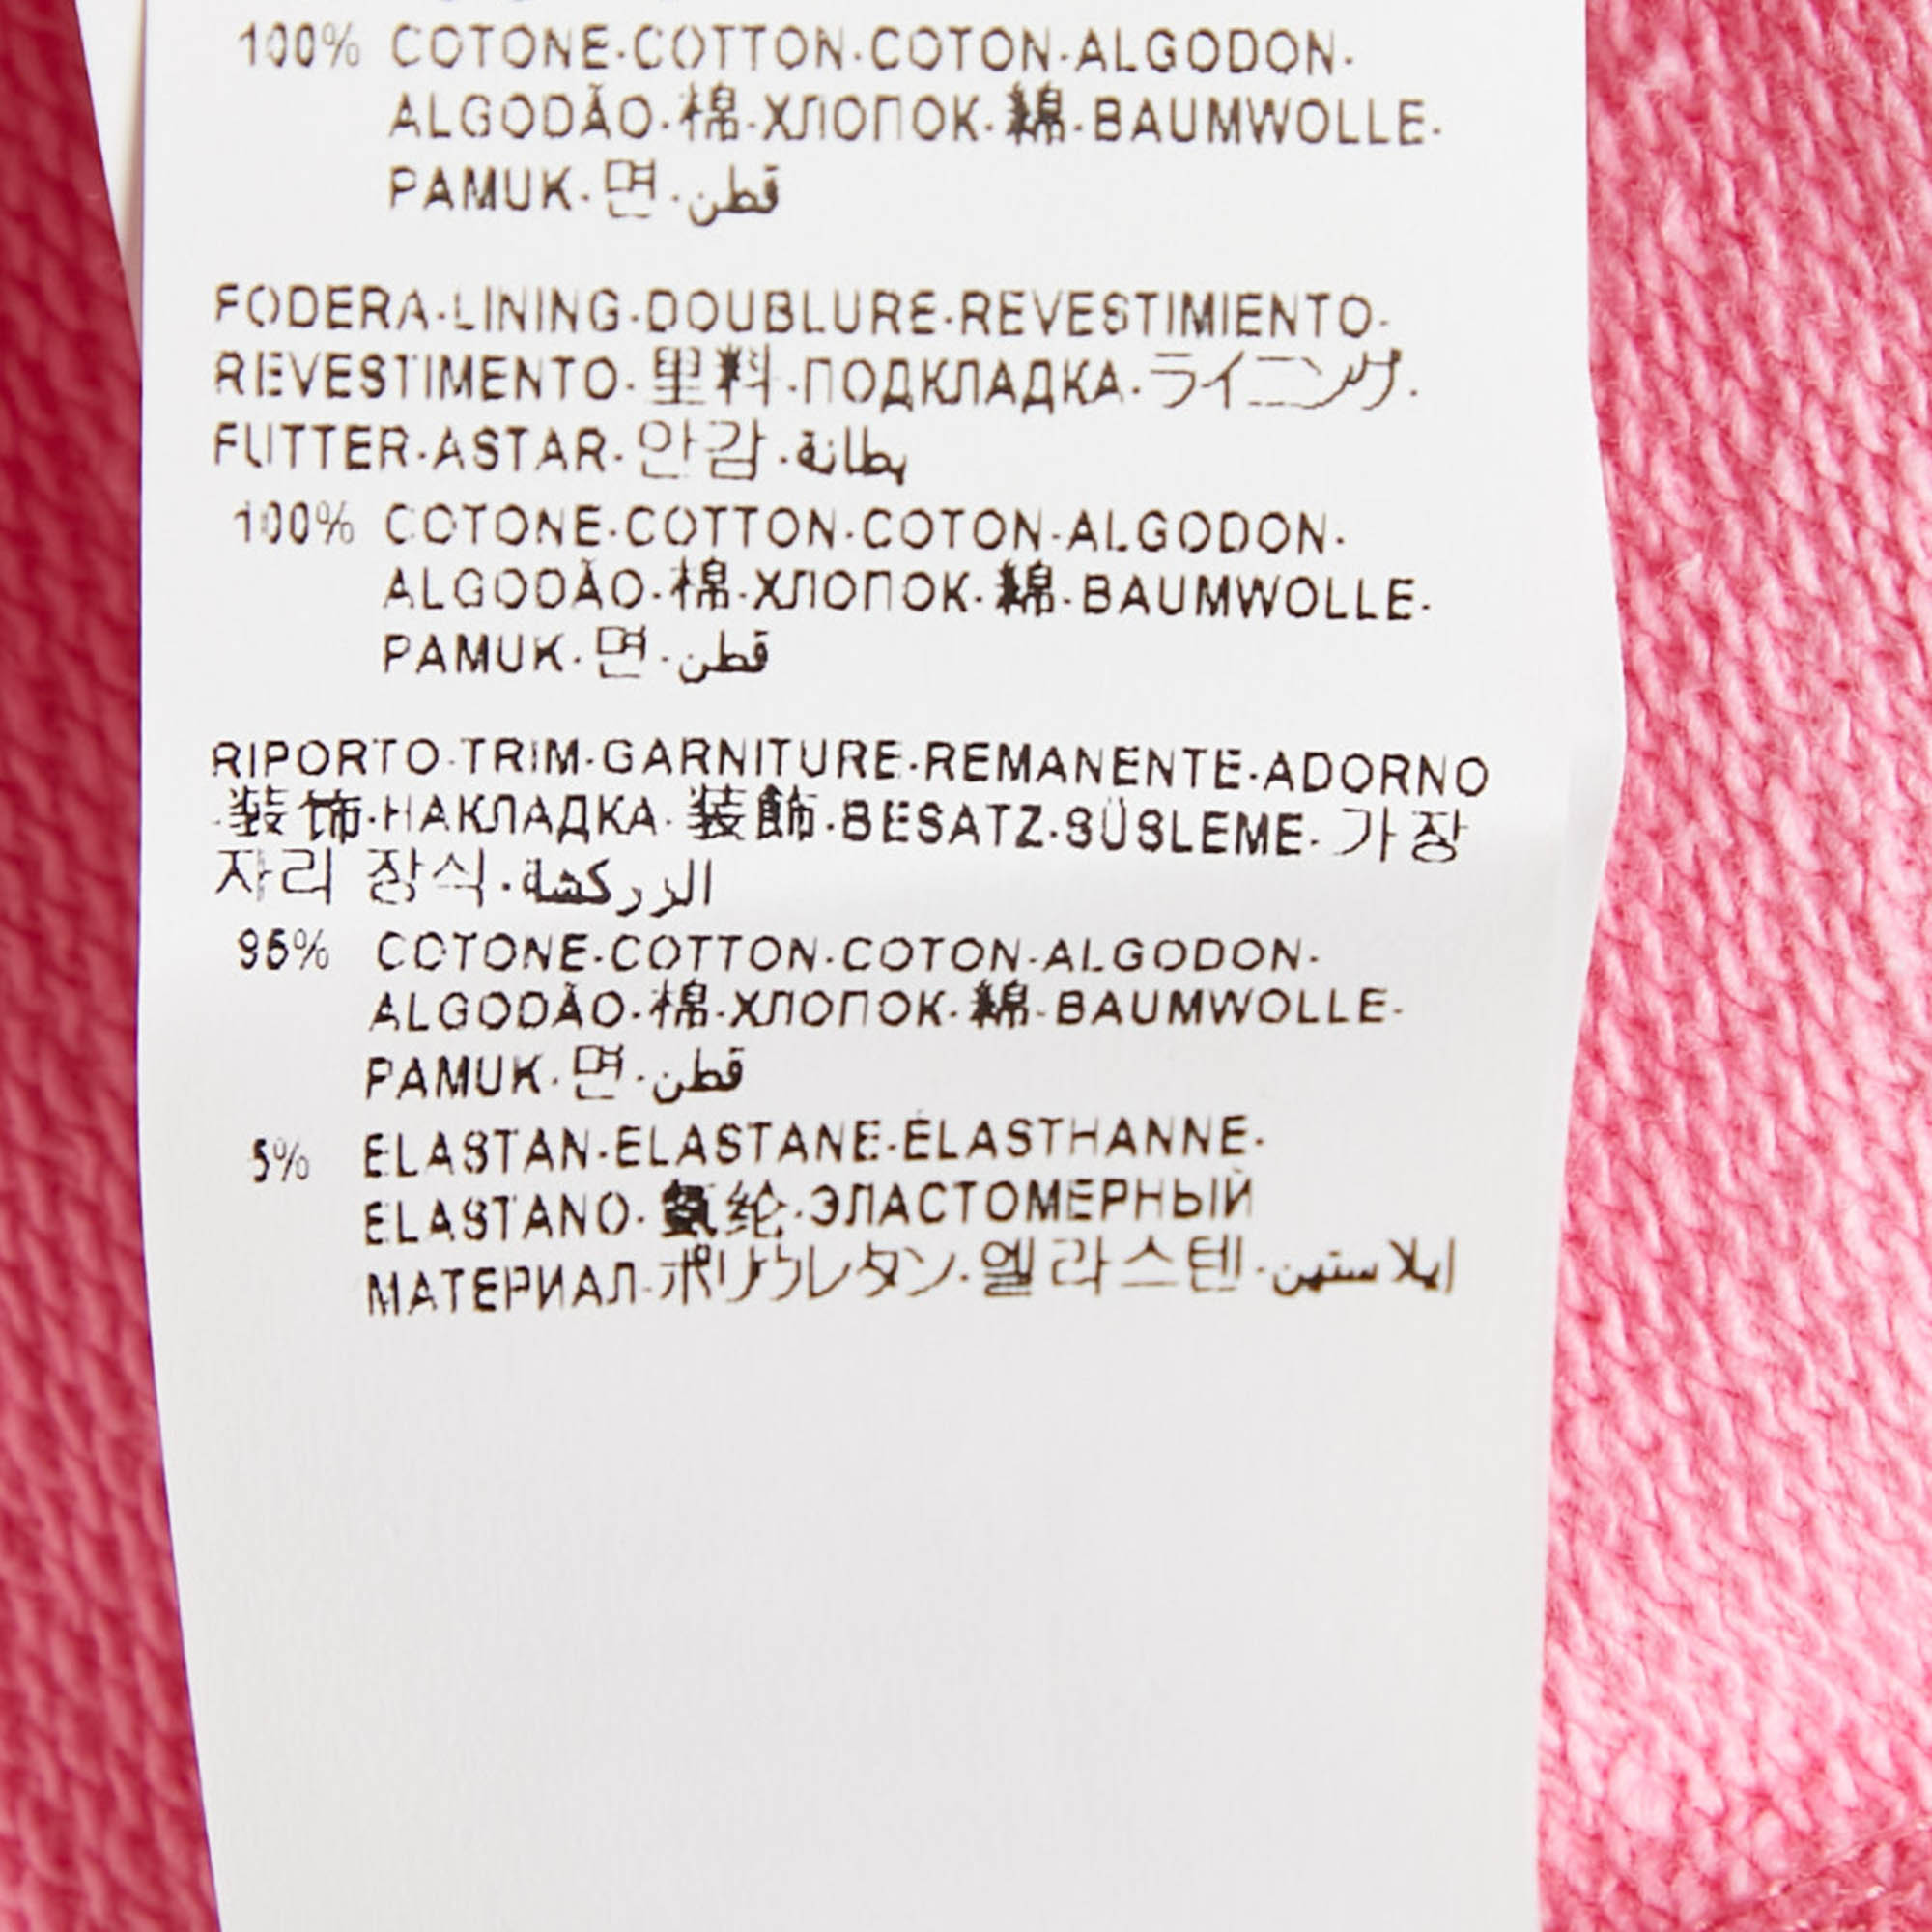 100% COTONE·COTTON·COTON·ALGODON·
ALGODÃO·棉·ХЛОПОК·綿·BAUMWOLLE·
PAMUK·면·قطن
FODERA·LINING·DOUBLURE·REVESTIMIENTO·
REVESTIMENTO·里料·ПОДКЛАДКА·ライニング·
FUTTER·ASTAR·안감·بطانة
100% COTONE·COTTON·COTON·ALGODON·
ALGODÃO·棉·ХЛОПОК·綿·BAUMWOLLE·
PAMUK·면·قطن
RIPORTO·TRIM·GARNITURE·REMANENTE·ADORNO
·装饰·НАКЛАДКА·装飾·BESATZ·SÜSLEME·가장
자리 장식·الزركشة
95% COTONE·COTTON·COTON·ALGODON·
ALGODÃO·棉·ХЛОПОК·綿·BAUMWOLLE·
PAMUK·면·قطن
5% ELASTAN·ELASTANE·ÉLASTHANNE·
ELASTANO·氨纶·ЭЛАСТОМЕРНЫЙ
МАТЕРИАЛ·ポリウレタン·엘라스텐·ايلاستين